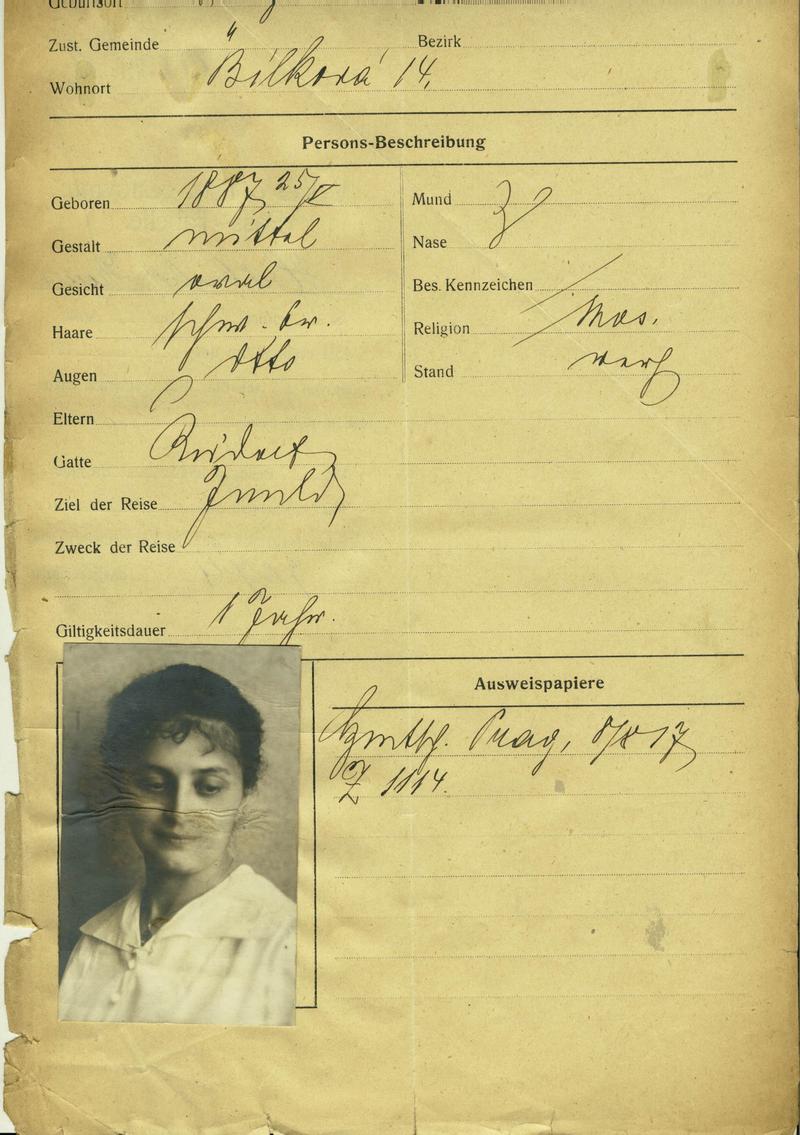 Geburtsort
Zust. Gemeinde " Bezirk
Wohnort Bílková 14.
Persons-Beschreibung
Geboren 1887 25/V
Mund
Gestalt mittel
Nase
Gesicht oval
Bes. Kennzeichen
Haare schw. br.
Religion Mos.
Augen dtto
Stand verh
Eltern
Gatte Rudolf
Ziel der Reise Inld
Zweck der Reise
Giltigkeitsdauer 1 Jahr.
Ausweispapiere
Prag, 8/8 17
Z 1114.